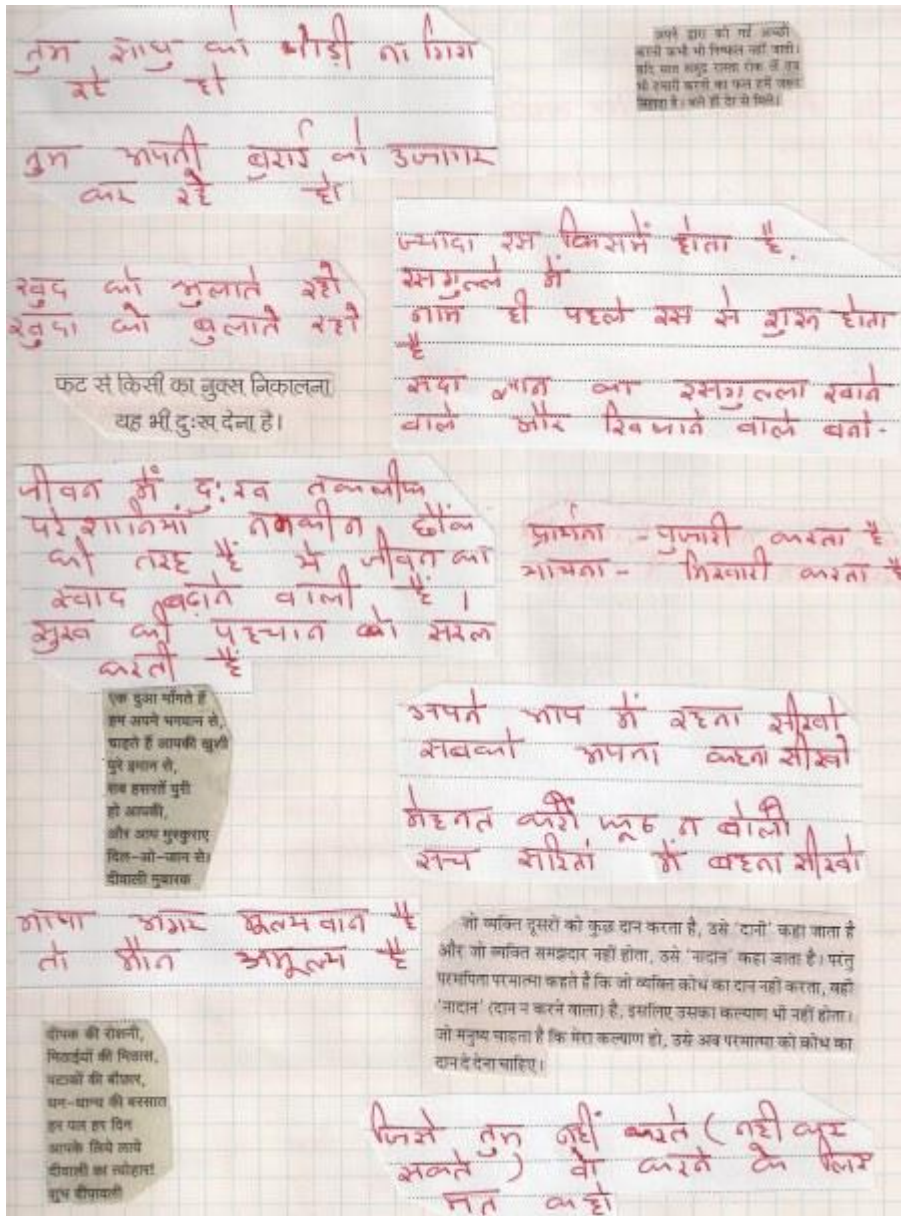 तुम साधु को थोड़ी ना गिरा
रहे हो
तुम अपनी बुराई को उजागर
कर रहे हो
अपने द्वारा की गई अच्छी
करनी कभी भी निष्फल नहीं जाती।
यदि सात समुद्र रास्ता रोक लें तब
भी हमारी करनी का फल हमें जरूर
मिलता है। भले ही देर से मिले।
खुद को भुलाते रहो
खुदा को बुलाते रहो
फट से किसी का नुक्स निकालना
यह भी दुःख देना है।
ज्यादा रस किसमें होता है.
रसगुल्ले में
नाम ही पहले रस से शुरू होता
है
सदा ज्ञान का रसगुल्ला खाने
वाले और खिलाने वाले बनो-
जीवन में दुःख तकलीफ
परेशानियां नमकीन छौंक
की तरह हैं ये जीवन का
स्वाद बढ़ाने वाली हैं।
सुख की पहचान को सरल
करती हैं
प्रार्थना - पुजारी करता है
याचना - भिखारी करता है
एक दुआ माँगते हैं
हम अपने भगवान से,
चाहते हैं आपकी खुशी
पुरे इमान से,
सब हसरतें पुरी
हो आपकी,
और आप मुस्कुराए
दिल-ओ-जान से।
दीवाली मुबारक
अपने आप में रहना सीखो
सबको अपना कहना सीखो
मेहनत करो झूठ न बोलो
सच सरिता में बहना सीखो
भाषा अगर मूल्यवान है
तो मौन अमूल्य है
जो व्यक्ति दूसरों को कुछ दान करता है, उसे 'दानी' कहा जाता है
और जो व्यक्ति समझदार नहीं होता, उसे 'नादान' कहा जाता है। परंतु
परमपिता परमात्मा कहते है कि जो व्यक्ति क्रोध का दान नहीं करता, वही
'नादान' (दान न करने वाला) है, इसलिए उसका कल्याण भी नहीं होता।
जो मनुष्य चाहता है कि मेरा कल्याण हो, उसे अब परमात्मा को क्रोध का
दान दे देना चाहिए।
दीपक की रोशनी,
मिठाईयों की मिठास,
पटाकों की बौछार,
धन-धान्य की बरसात
हर पल हर दिन
आपके लिये लाये
दीवाली का त्योहार!
शुभ दीपावली
जिसे तुम नहीं करते (नहीं कर
सकते) वो करने के लिए
मत कहो